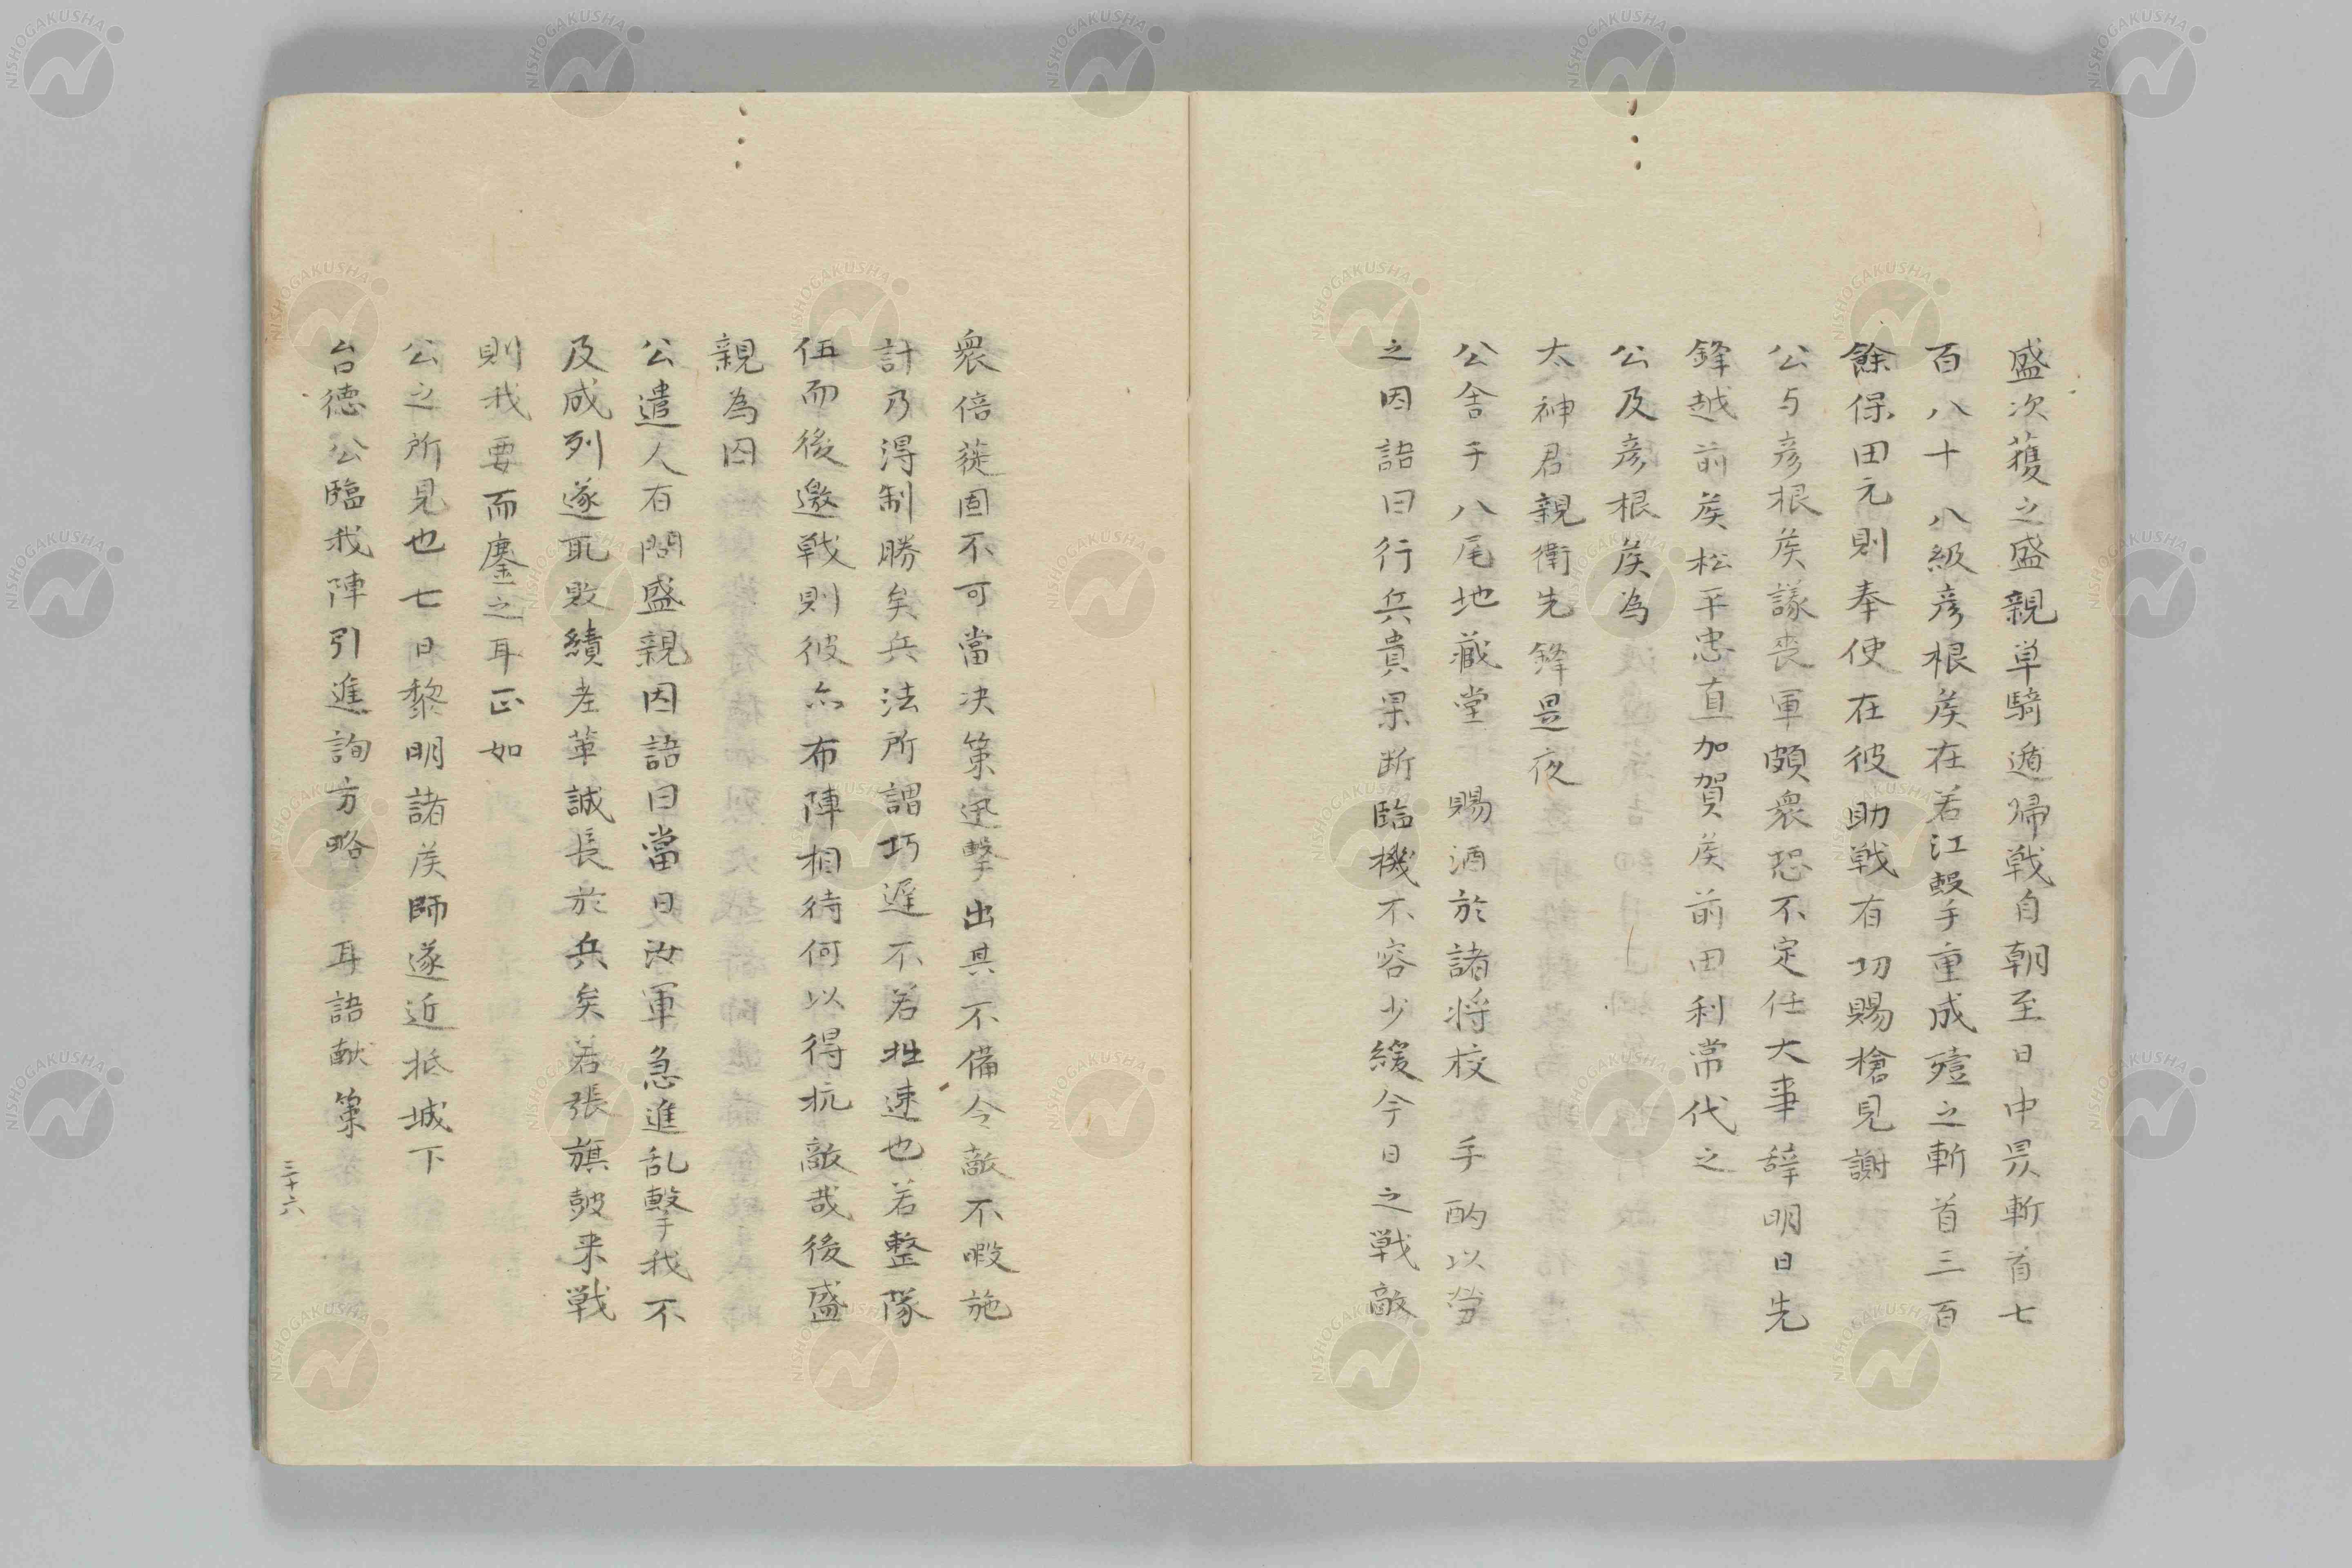 盛次獲之盛親単騎遁帰戦自朝至日中昃斬首七
百八十八級彦根矦在若江擊重成殪之斬首三百
餘保田元則奉使在彼助戦有功賜槍見謝
公与彦根矦議喪軍頗衆恐不定任大事辞明日先
鋒越前矦松平忠直加賀矦前田利常代之
公及彦根矦為
太神君親衛先鋒是夜
公舎于八尾地蔵堂 賜酒於諸将校 手酌以労
之因語曰行兵貴果断臨機不容少緩今日之戦敵
衆倍蓰固不可當决策迅擊出其不備令敵不暇施
計乃得制勝矣兵法所謂巧遅不若拙速也若整隊
伍而後邀戦則彼亦布陣相待何以得抗敵哉後盛
親為囚
公遣人有問盛親因語曰當日汝軍急進乱擊我不
及成列遂取敗績老革誠長於兵矣若張旗皷来戦
則我要而鏖之耳正如
公之所見也七日黎明諸矦師遂近抵城下
台德公臨我陣引進詢方略 耳語献策
三十六
NISHOGAKUSHA